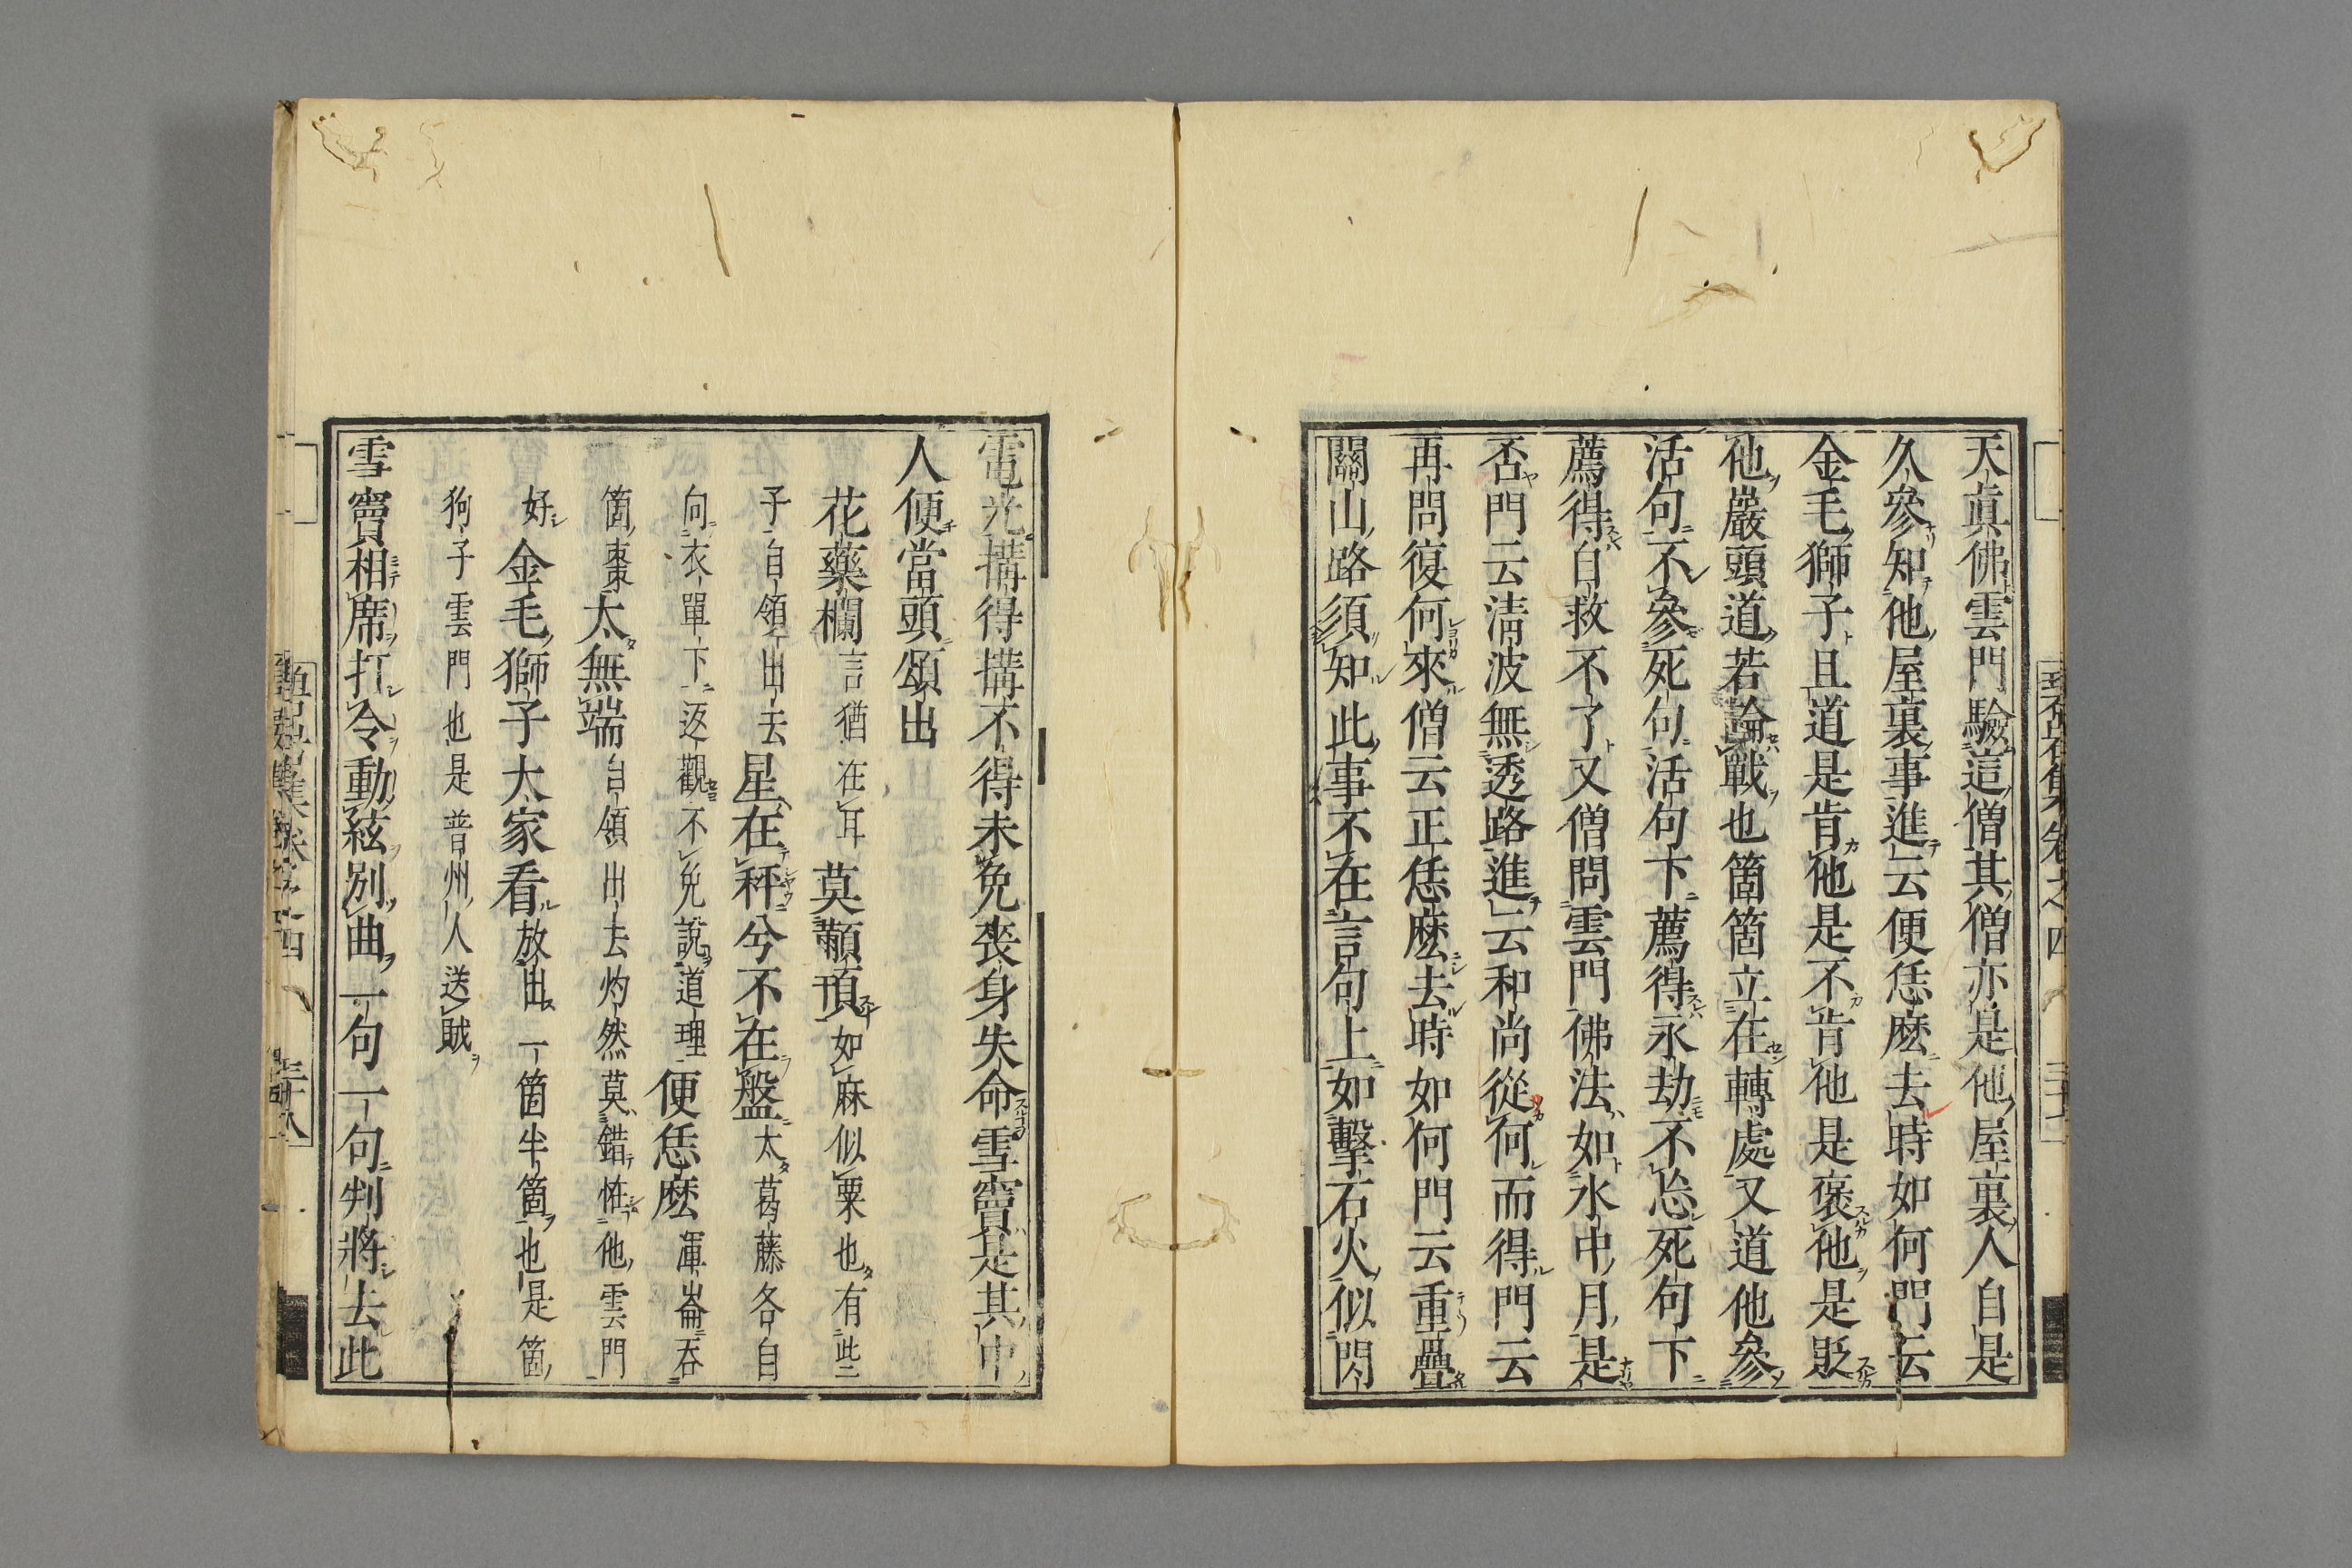 天真佛雲門驗這僧其僧亦是他屋裏人自是
久參知他屋裏事進云便恁麽去時如何門云
金毛獅子且道是肯他是不肯他是褒他是貶
他巖頭道若論戰也箇箇立在轉處又道他參
活句不參死句活句下薦得永劫不忘死句下
薦得自救不了又僧問雲門佛法如水中月是
否門云清波無透路進云和尚從何而得門云
再問復何來僧云正恁麽去時如何門云重疊
關山路須知此事不在言句上如擊石火似閃
電光搆得搆不得未免喪身失命雪竇是其中
人便當頭頌出
花藥欄言猶在耳莫顢頇如麻似粟也有些
子自領出去星在秤兮不在盤太葛藤各自
向衣單下返觀不免說道理便恁麽渾崙吞
箇棗太無端自領出去灼然莫錯恠他雲門
好金毛獅子大家看放出一箇半箇也是箇
狗子雲門也是普州人送賊
雪竇相席打令動絃別曲一句一句判將去此